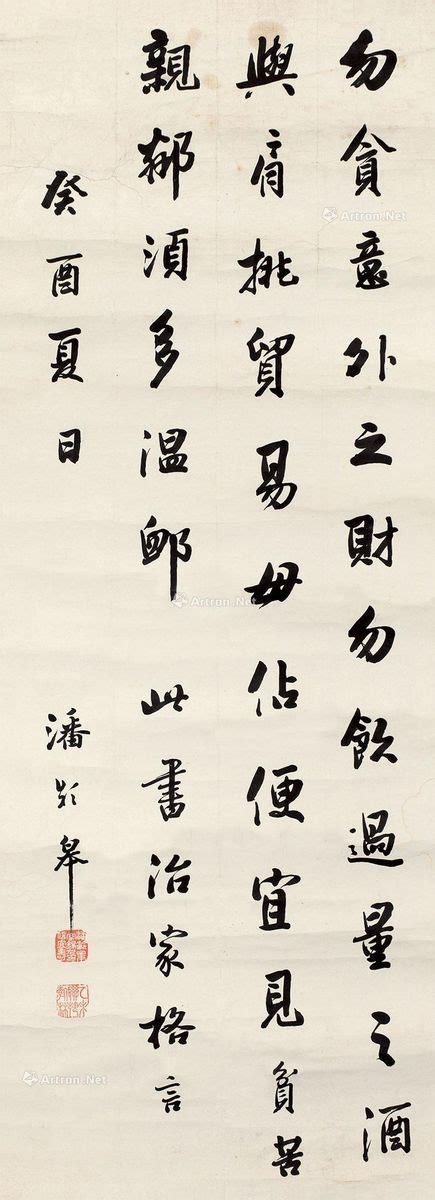 勿貪意外之財勿飲過量之酒
與肩挑貿易毋佔便宜見貧苦
親鄰須多温卹 此書治家格言
癸酉夏日 潘齡皋
Artron.Net
Artron.Net
Artron.Net